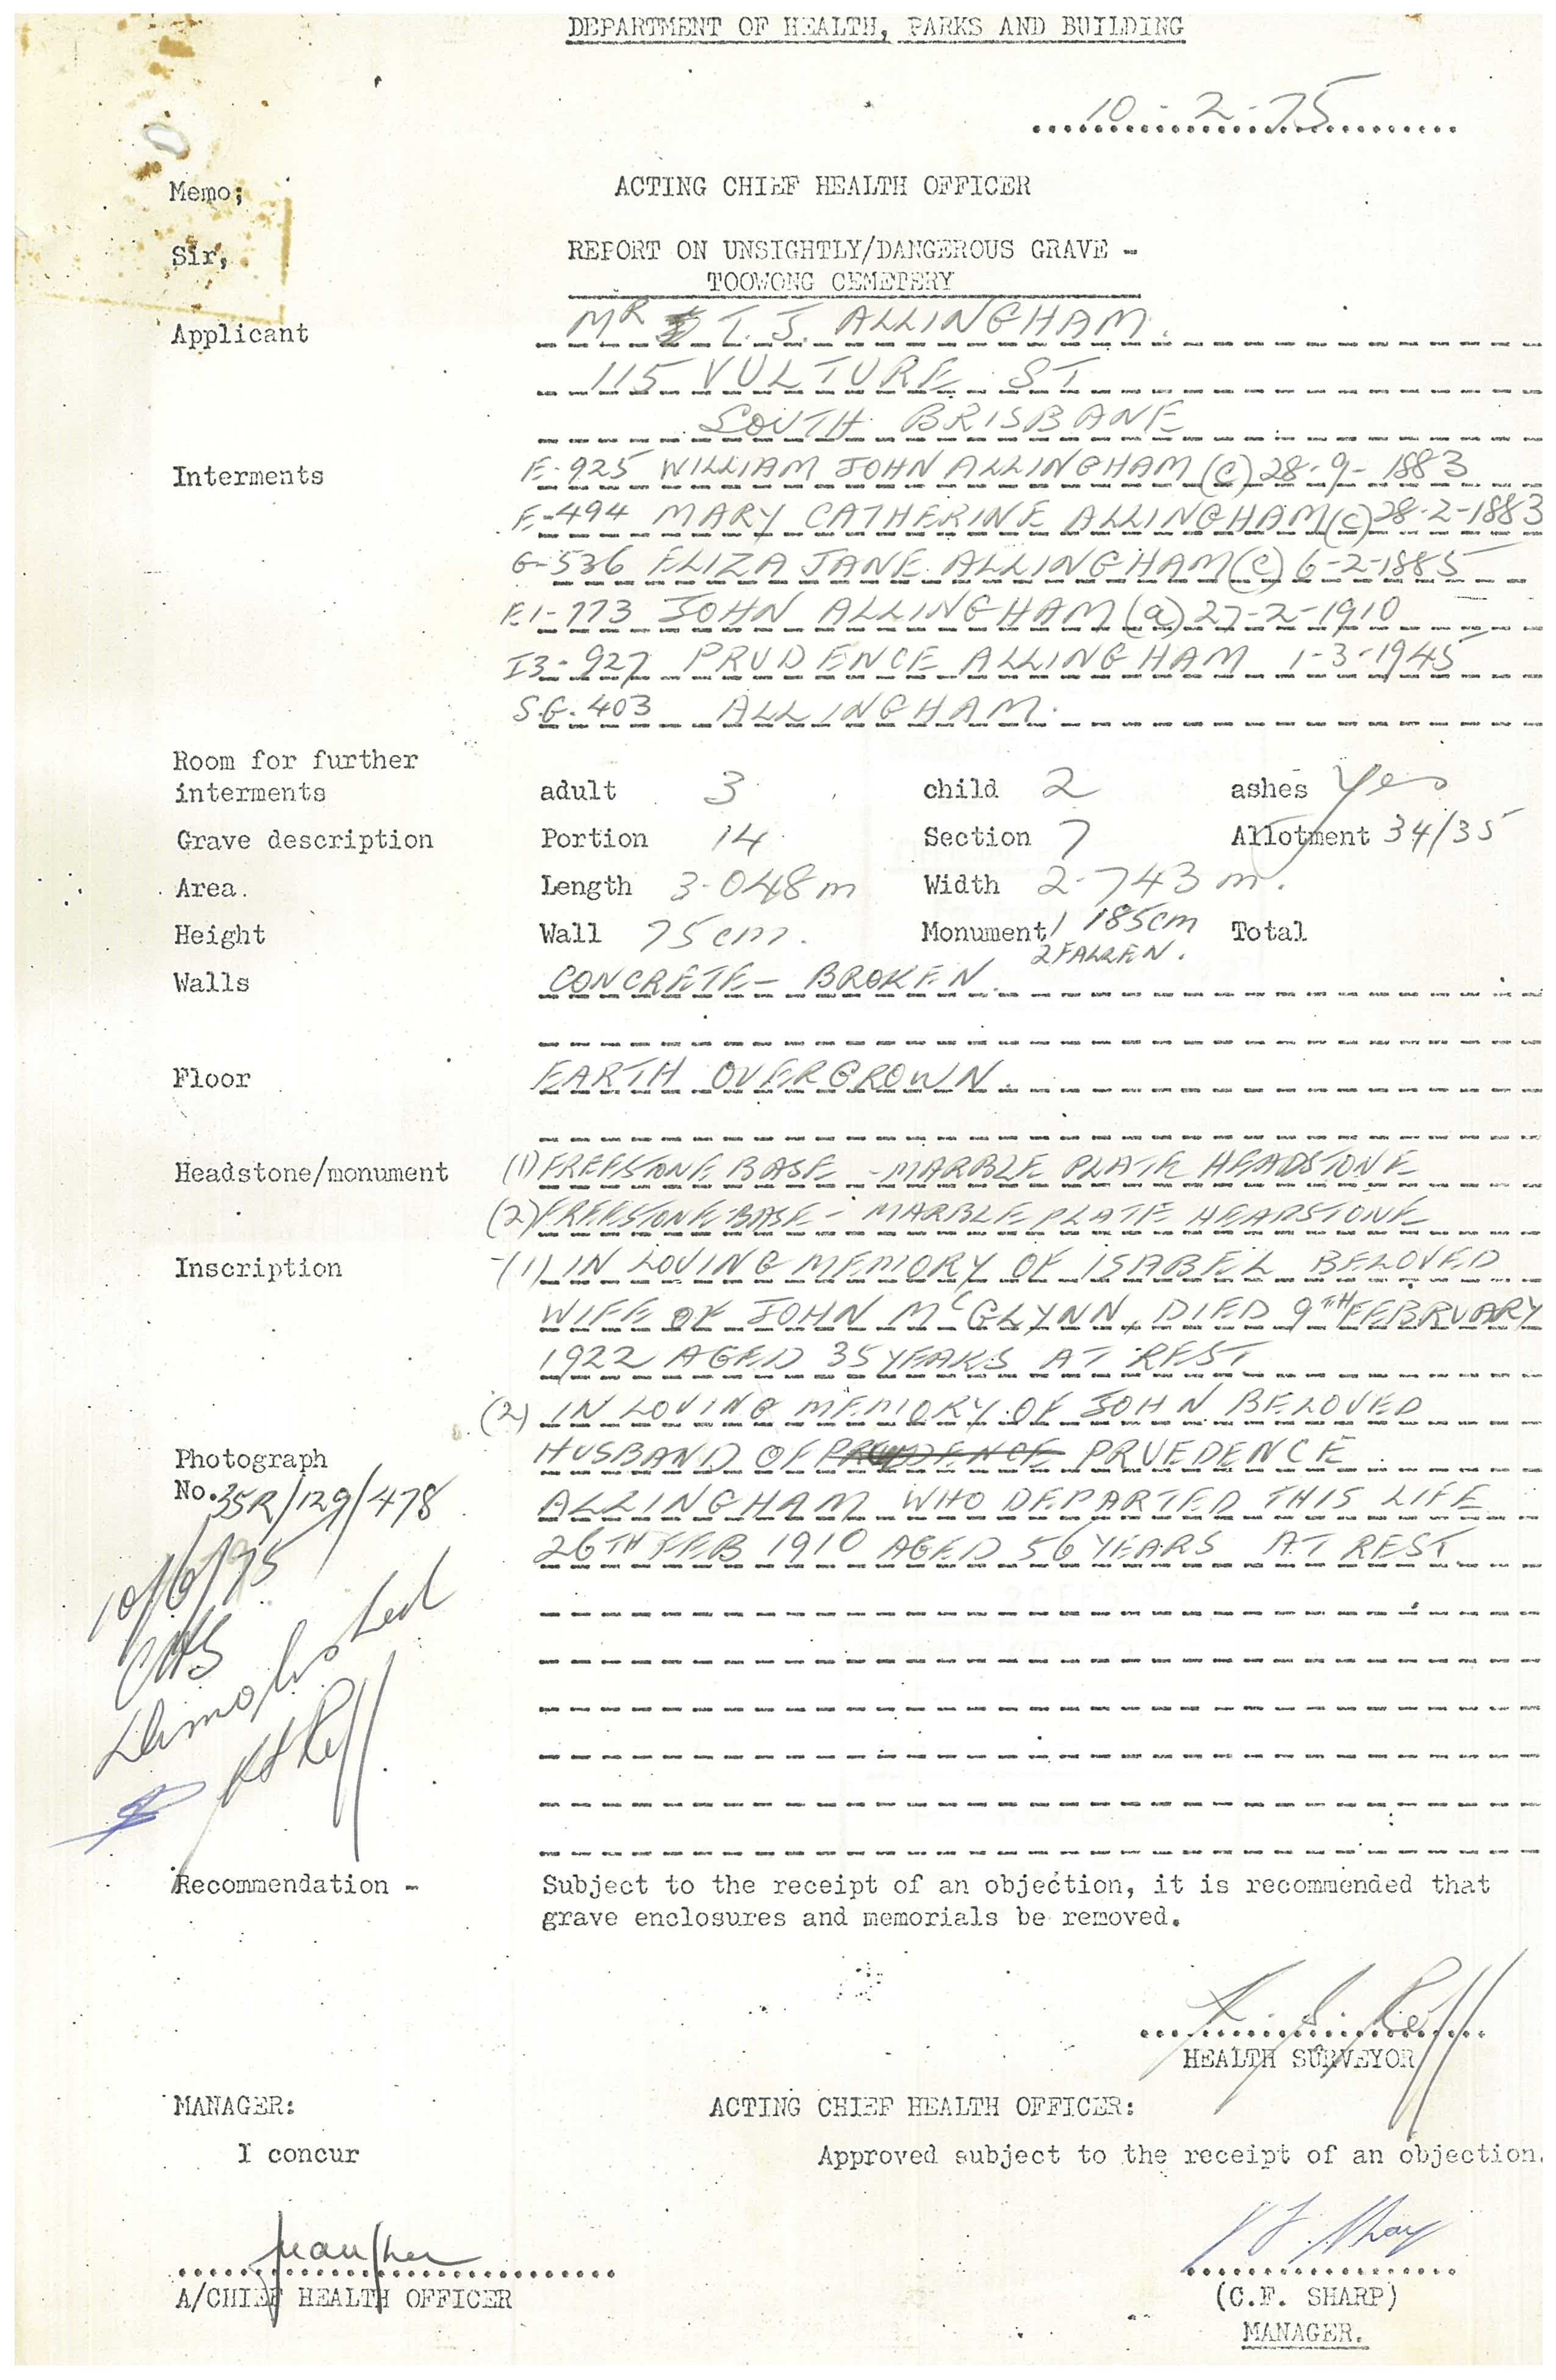 DEPARTMENT OF HEALTH, PARKS AND BUILDING
10-2-75
Memo; ACTING CHIEF HEALTH OFFICER
Sir, REPORT ON UNSIGHTLY/DANGEROUS GRAVE -
TOOWONG CEMETERY
Applicant MR T. J. ALLINGHAM.
115 VULTURE ST
SOUTH BRISBANE
Interments F-925 WILLIAM JOHN ALLINGHAM (C) 28-9-1883
F-494 MARY CATHERINE ALLINGHAM (C) 28-2-1883
G-536 ELIZA JANE ALLINGHAM (C) 6-2-1885
F.1-773 JOHN ALLINGHAM (a) 27-2-1910
I3-927 PRUDENCE ALLINGHAM 1-3-1945
S.G. 403 ALLINGHAM.
Room for further
interments adult 3 child 2 ashes Yes
Grave description Portion 14 Section 7 Allotment 34/35
Area. Length 3.048m Width 2.743m.
Height Wall 75cm. Monument 1 185cm Total
2 FALLEN.
Walls CONCRETE - BROKEN.
Floor EARTH OVERGROWN.
Headstone/monument (1) FREESTONE BASE - MARBLE PLATE HEADSTONE
(2) FREESTONE BASE - MARBLE PLATE HEADSTONE
Inscription -(1) IN LOVING MEMORY OF ISABEL BELOVED
WIFE OF JOHN McGLYNN, DIED 9TH FEBRUARY
1922 AGED 35 YEARS AT REST
(2) IN LOVING MEMORY OF JOHN BELOVED
Photograph HUSBAND OF PRUDENCE PRUEDENCE
No. 35R/129/478 ALLINGHAM WHO DEPARTED THIS LIFE
26TH FEB 1910 AGED 56 YEARS AT REST
10/6/75
Demolished
Recommendation - Subject to the receipt of an objection, it is recommended that
grave enclosures and memorials be removed.
HEALTH SURVEYOR
MANAGER: ACTING CHIEF HEALTH OFFICER:
I concur Approved subject to the receipt of an objection.
A/CHIEF HEALTH OFFICER (C.F. SHARP)
MANAGER.